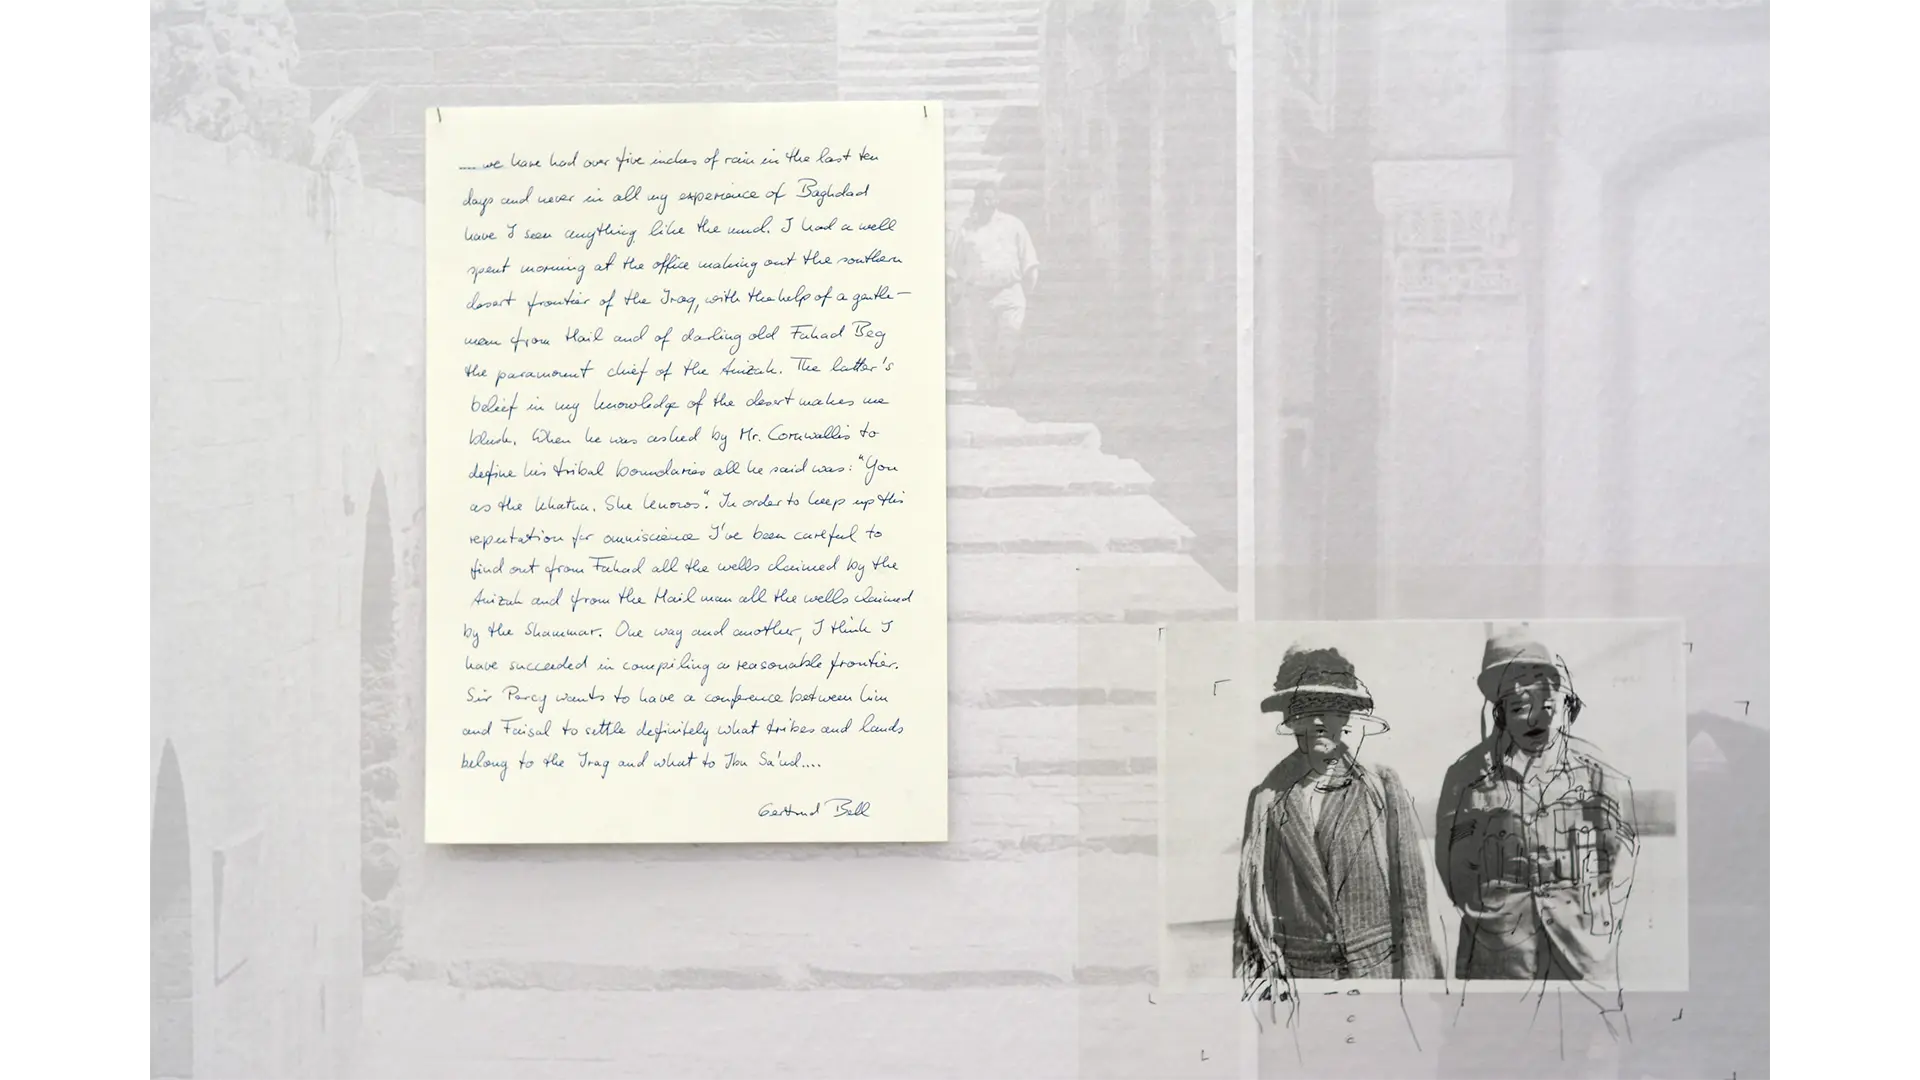 .... we have had over five inches of rain in the last ten
days and never in all my experience of Baghdad
have I seen anything like the mud. I had a well
spent morning at the office making out the southern
desert frontier of the Iraq, with the help of a gentle-
man from Hail and of darling old Fahad Beg
the paramount chief of the Anizah. The latter's
belief in my knowledge of the desert makes me
blush. When he was asked by Mr. Cornwallis to
define his tribal boundaries all he said was: "You
as the Khatun. She knows". In order to keep up this
reputation for omniscience I've been careful to
find out from Fahad all the wells claimed by the
Anizah and from the Hail man all the wells claimed
by the Shammar. One way and another, I think I
have succeeded in compiling a reasonable frontier.
Sir Percy wants to have a conference between him
and Faisal to settle definitely what tribes and lands
belong to the Iraq and what to Ibn Sa'ud....
Gertrud Bell